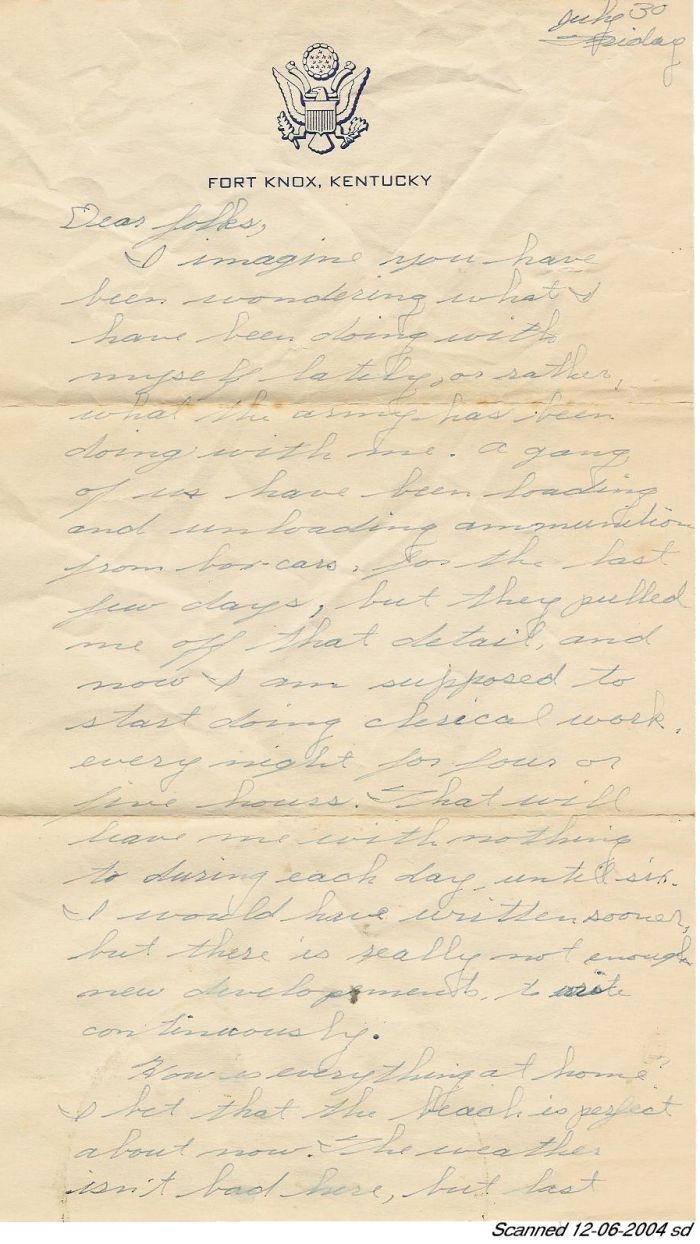 July 30
Friday
FORT KNOX, KENTUCKY
Dear folks,
I imagine you have
been wondering what I
have been doing with
myself lately, or rather,
what the army has been
doing with me. A gang
of us have been loading
and unloading ammunition
from box-cars, for the last
few days, but they pulled
me off that detail, and
now I am supposed to
start doing clerical work,
every night for four or
five hours. That will
leave me with nothing
to during each day, until six.
I would have written sooner,
but there is really not enough
new developments, to write
continuously.
How is everything at home?
I bet that the beach is perfect
about now. The weather
isn't bad here, but last
Scanned 12-06-2004 sd